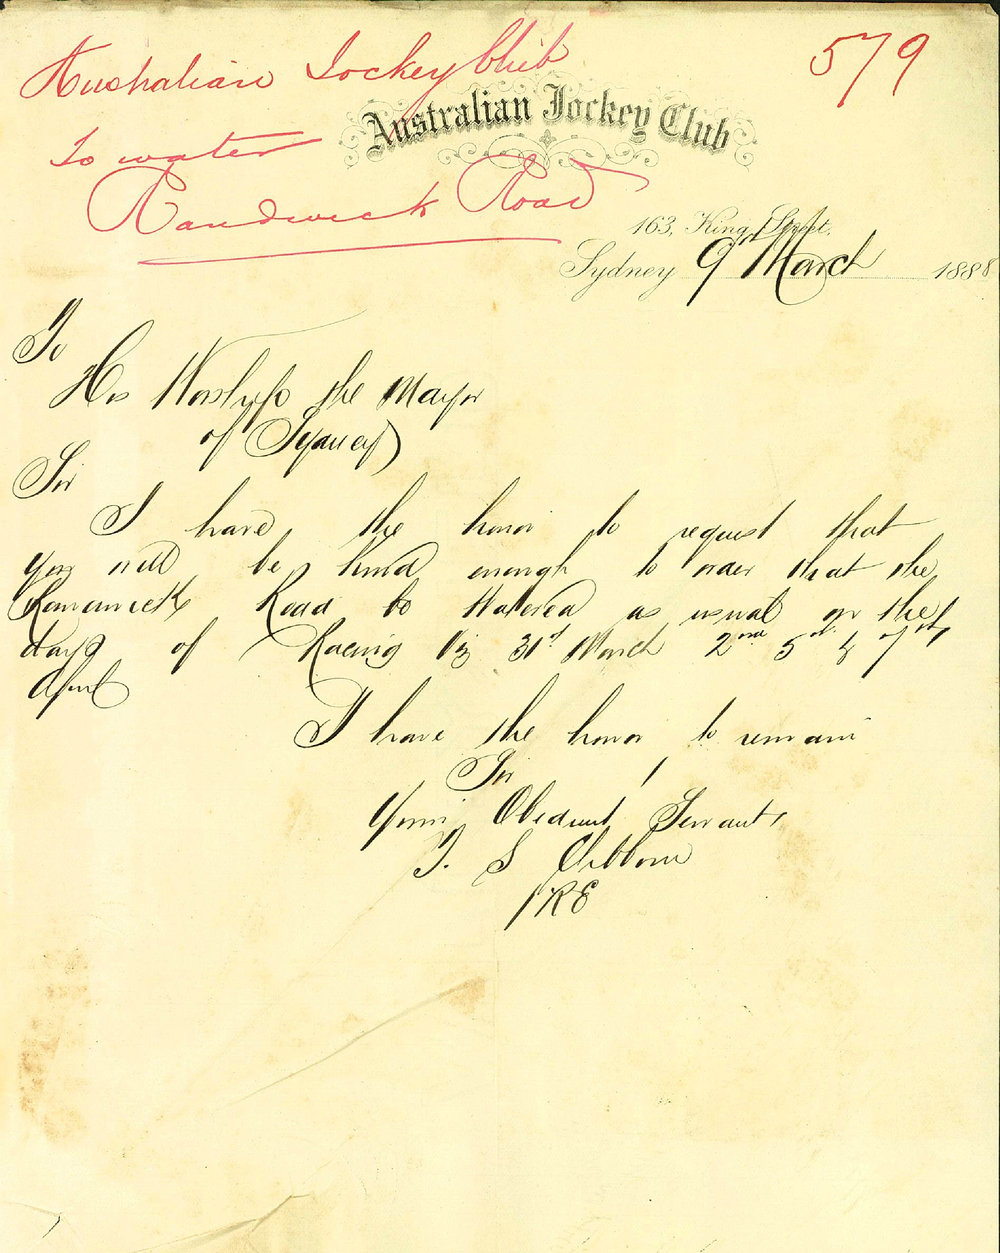 Australian Jockey Club
579
Australian Jockey Club
To water
Randwick Road
163, King Street,
Sydney 9th March 1888
To
His Worship the Mayor
of Sydney)
Sir
I have the honor to request that
you will be kind enough to order that the
Randwick Road be Watered as usual on the
days of Racing Viz 31st March 2nd 5th & 7th
April
I have the honor to remain
Sir
Your Obedient Servant,
T. S. Clibborn